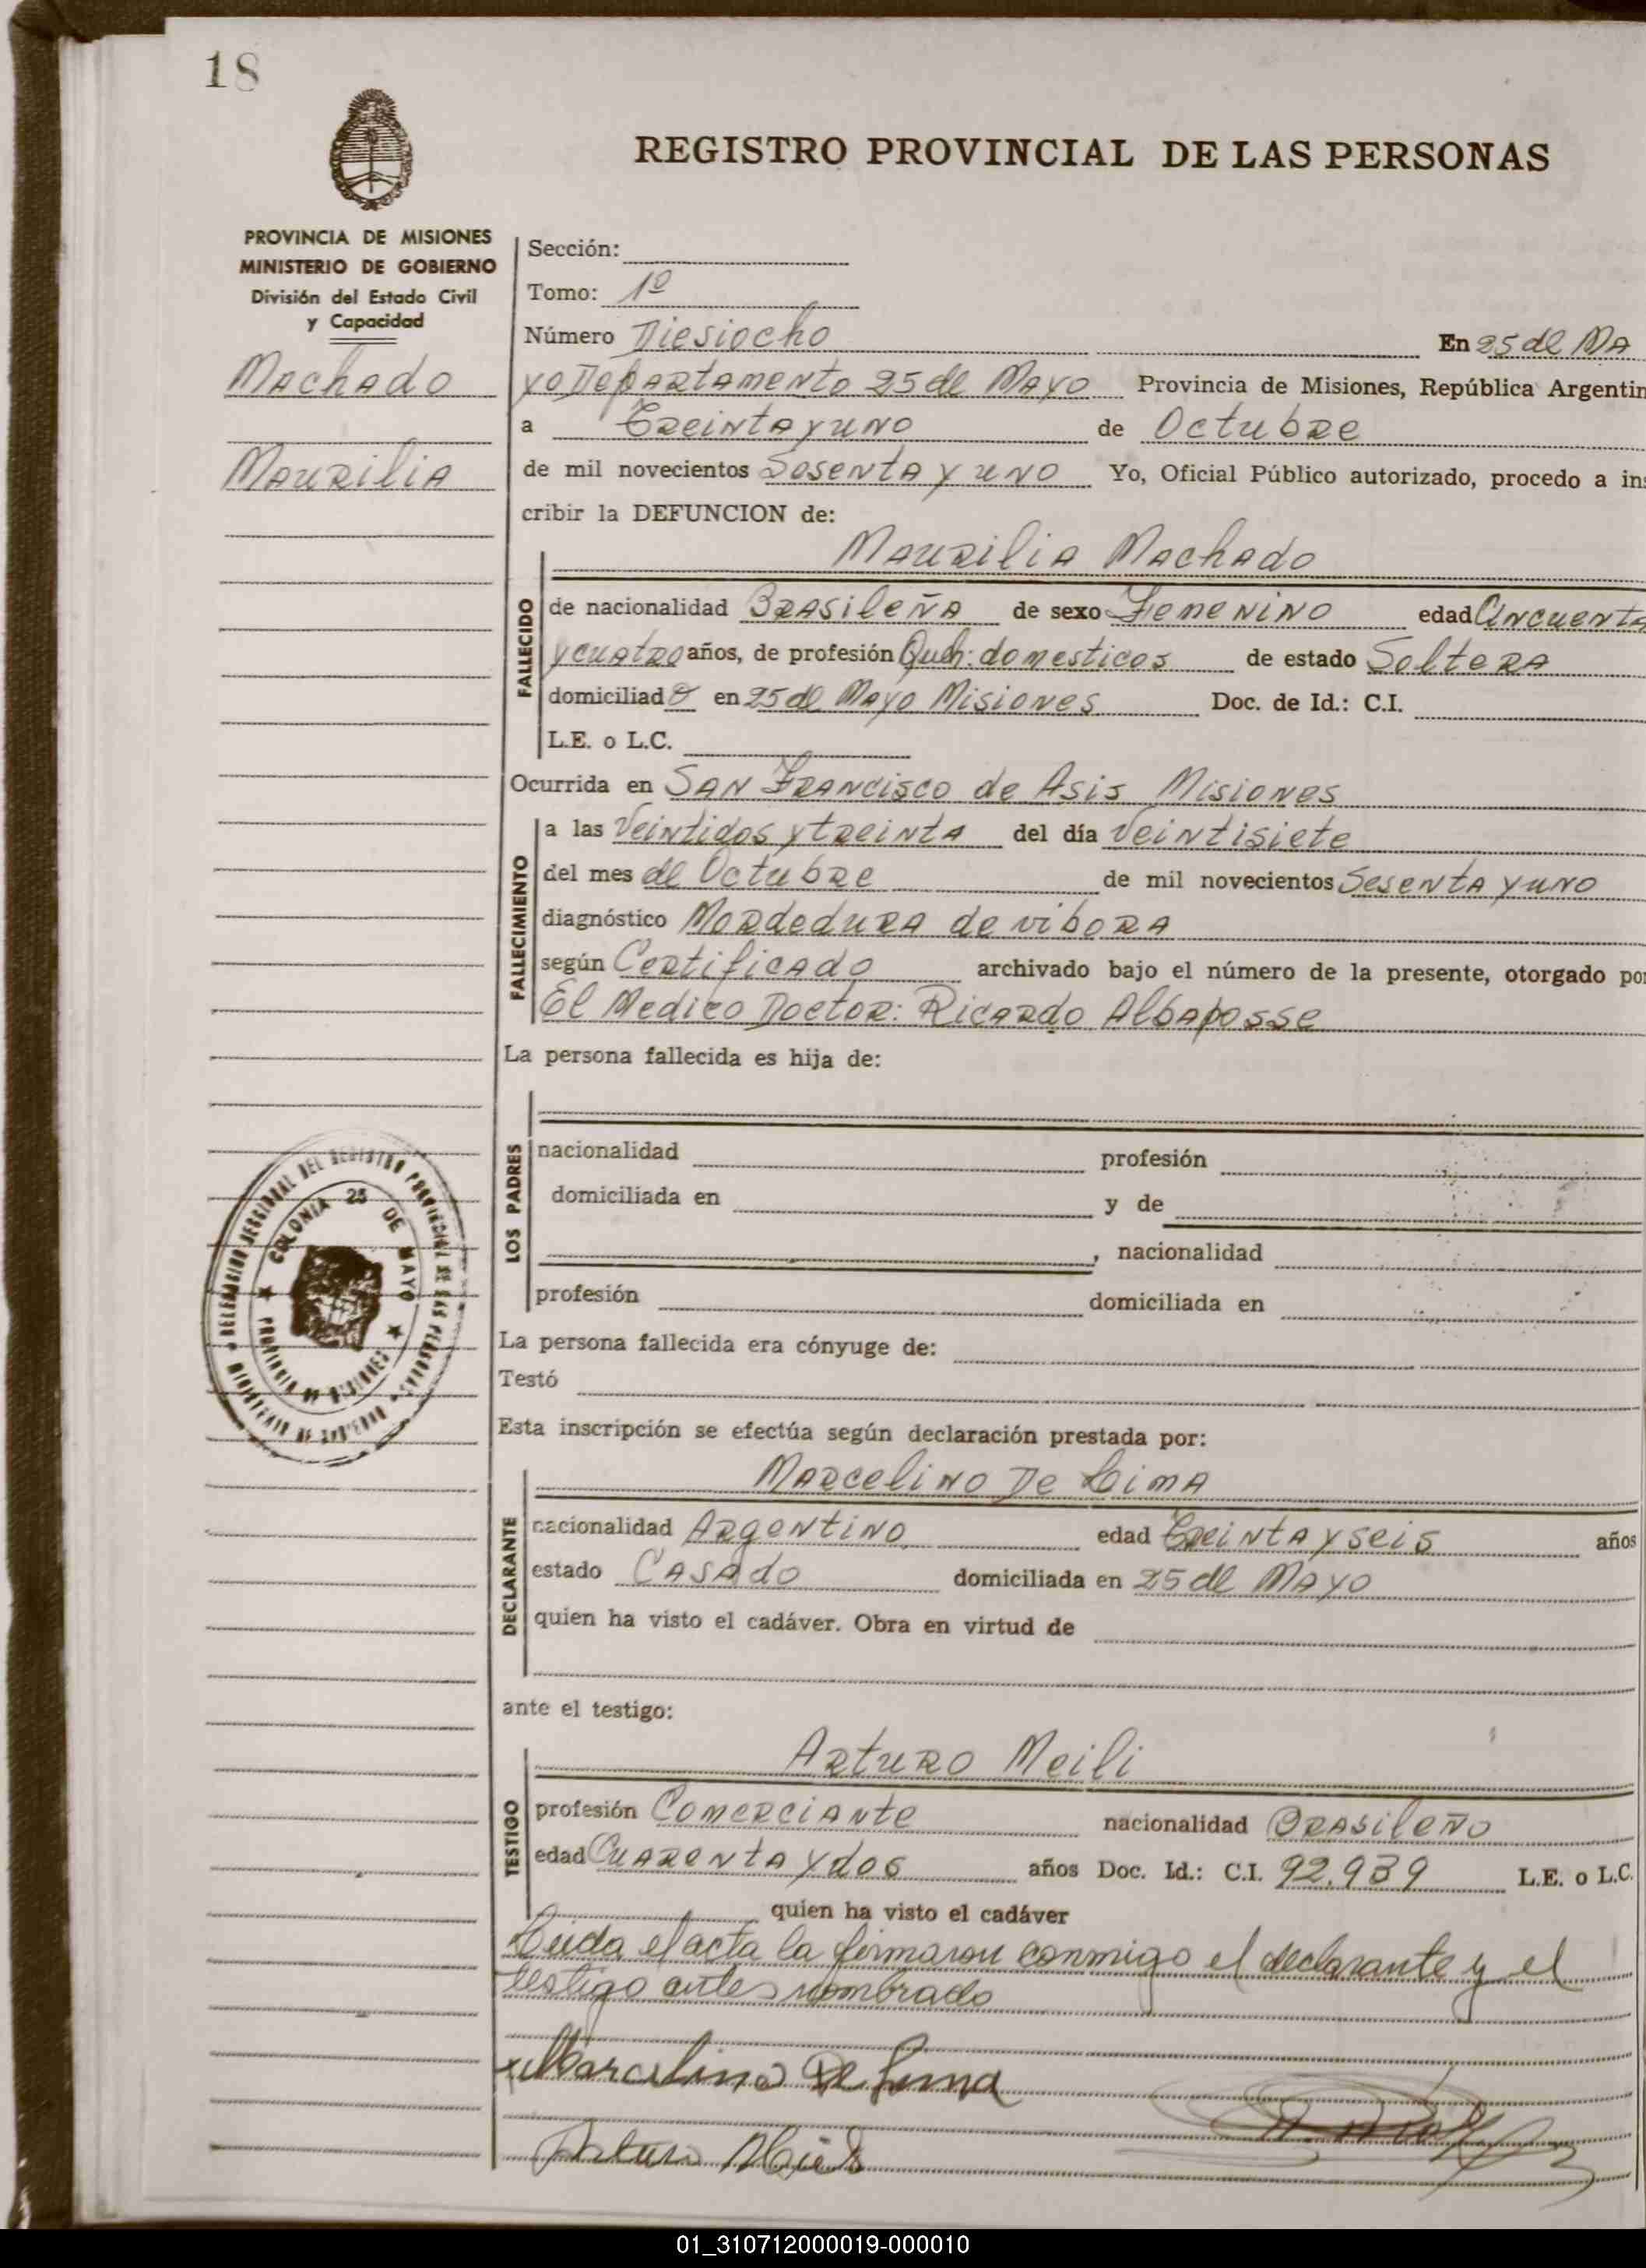 18
REGISTRO PROVINCIAL DE LAS PERSONAS
PROVINCIA DE MISIONES
MINISTERIO DE GOBIERNO
División del Estado Civil
y Capacidad
Machado
Maurilia
Sección:
Tomo: 1º
Número Diesiocho En 25 de Ma
yo Departamento 25 de Mayo Provincia de Misiones, República Argentin
a Treinta y uno de Octubre
de mil novecientos Sesenta y uno Yo, Oficial Público autorizado, procedo a ins
cribir la DEFUNCION de:
Maurilia Machado
FALLECIDO
de nacionalidad Brasileña de sexo Femenino edad Cincuenta
y cuatro años, de profesión Queh: domesticos de estado Soltera
domiciliad a en 25 de Mayo Misiones Doc. de Id.: C.I.
L.E. o L.C.
Ocurrida en San Francisco de Asis Misiones
FALLECIMIENTO
a las Veintidos y treinta del día Veintisiete
del mes de Octubre de mil novecientos Sesenta y uno
diagnóstico Mordedura de vibora
según Certificado archivado bajo el número de la presente, otorgado por
El Medico Doctor: Ricardo Albaposse
La persona fallecida es hija de:
LOS PADRES
nacionalidad profesión
domiciliada en y de
, nacionalidad
profesión domiciliada en
La persona fallecida era cónyuge de:
Testó
Esta inscripción se efectúa según declaración prestada por:
Marcelino De Lima
DECLARANTE
nacionalidad Argentino edad Treinta y seis años
estado Casado domiciliada en 25 de Mayo
quien ha visto el cadáver. Obra en virtud de
ante el testigo:
Arturo Meili
TESTIGO
profesión Comerciante nacionalidad Brasileño
edad Cuarenta y dos años Doc. Id.: C.I. 92.939 L.E. o L.C.
quien ha visto el cadáver
Leida el acta la firmaron conmigo el declarante y el
testigo antes nombrado
Marcelino De Lima
Arturo Meili
DELEGACION SECCIONAL DEL REGISTRO PROVINCIAL DE LAS PERSONAS
MINISTERIO DE GOBIERNO
COLONIA 25 DE MAYO
PROVINCIA DE MISIONES
01_310712000019-000010